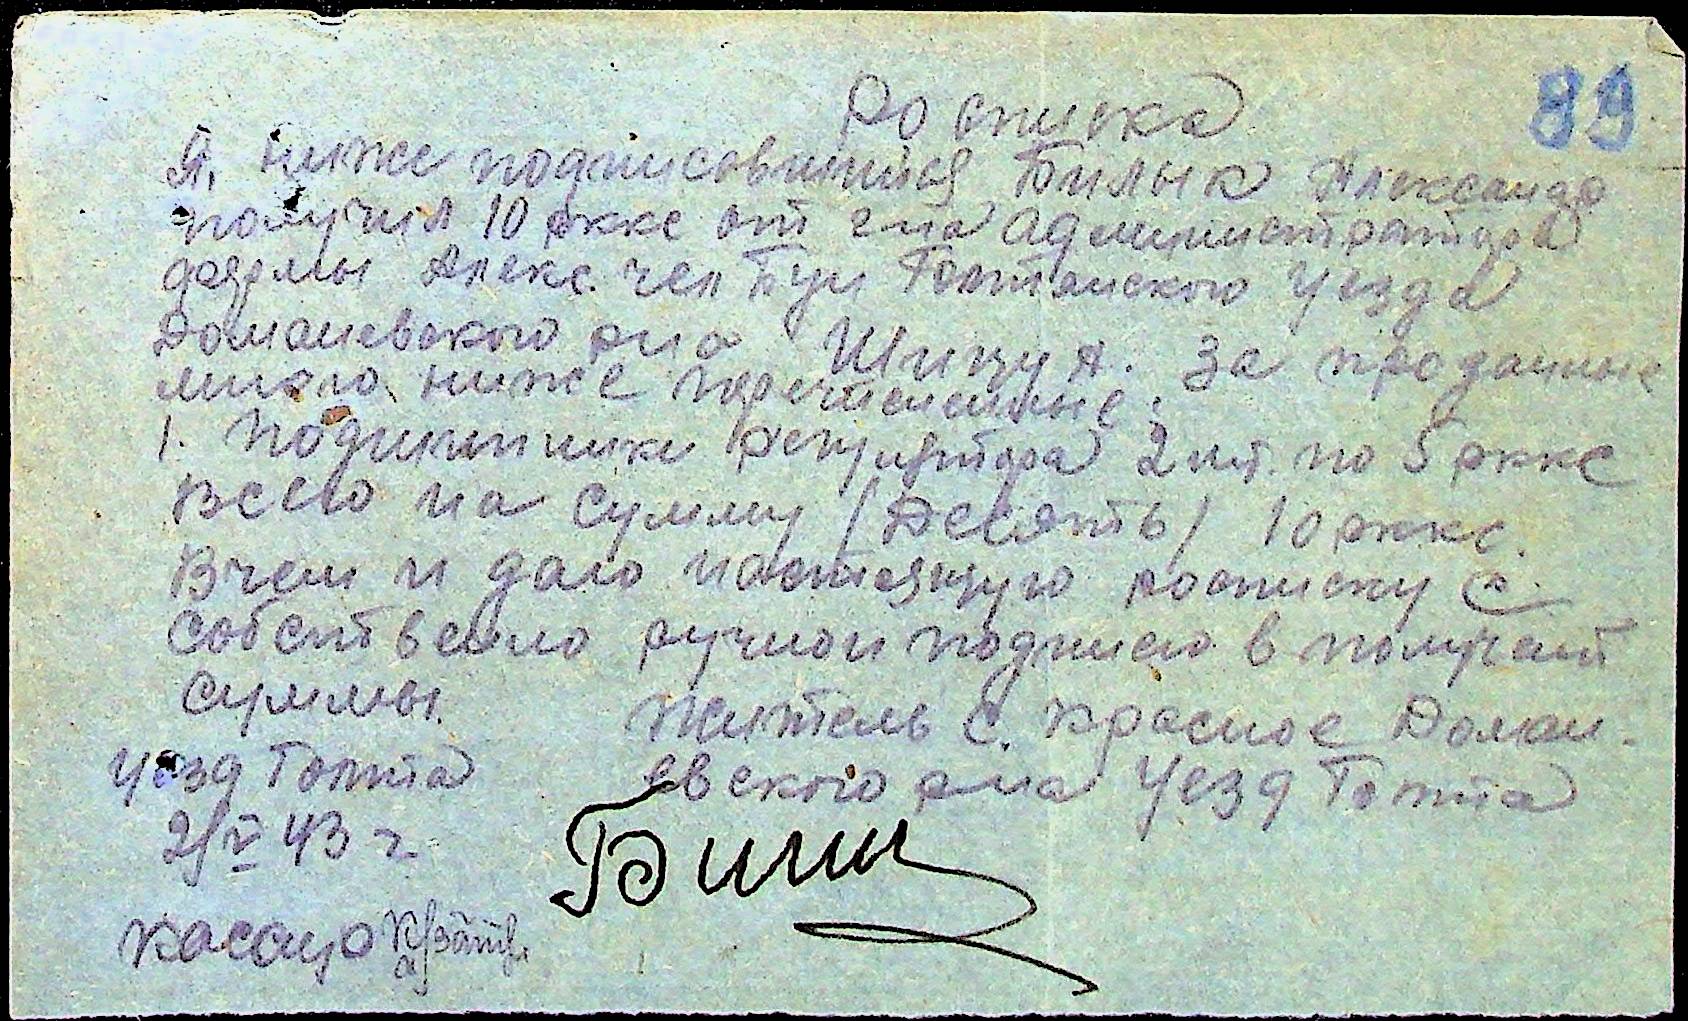 89
Росписка
Я, ниже подписовшийся Билык Александр
получил 10 рккс от г-на администратора
фермы Алекс. чел Буи Голтанского Уезда
Доманевского р-на Шицу А. За проданные
мною ниже перечисленные:
1. Подшипники 2 шт. по 5 рккс
Всего на сумму /Десять/ 10 рккс.
В чем и даю настоящую росписку С.
Собственно ручной подписю в получент
суммы.
Житель с. Красное Доман-
Уезд Голта
евского р-на Уезд Голта
2/V 43 г
Били